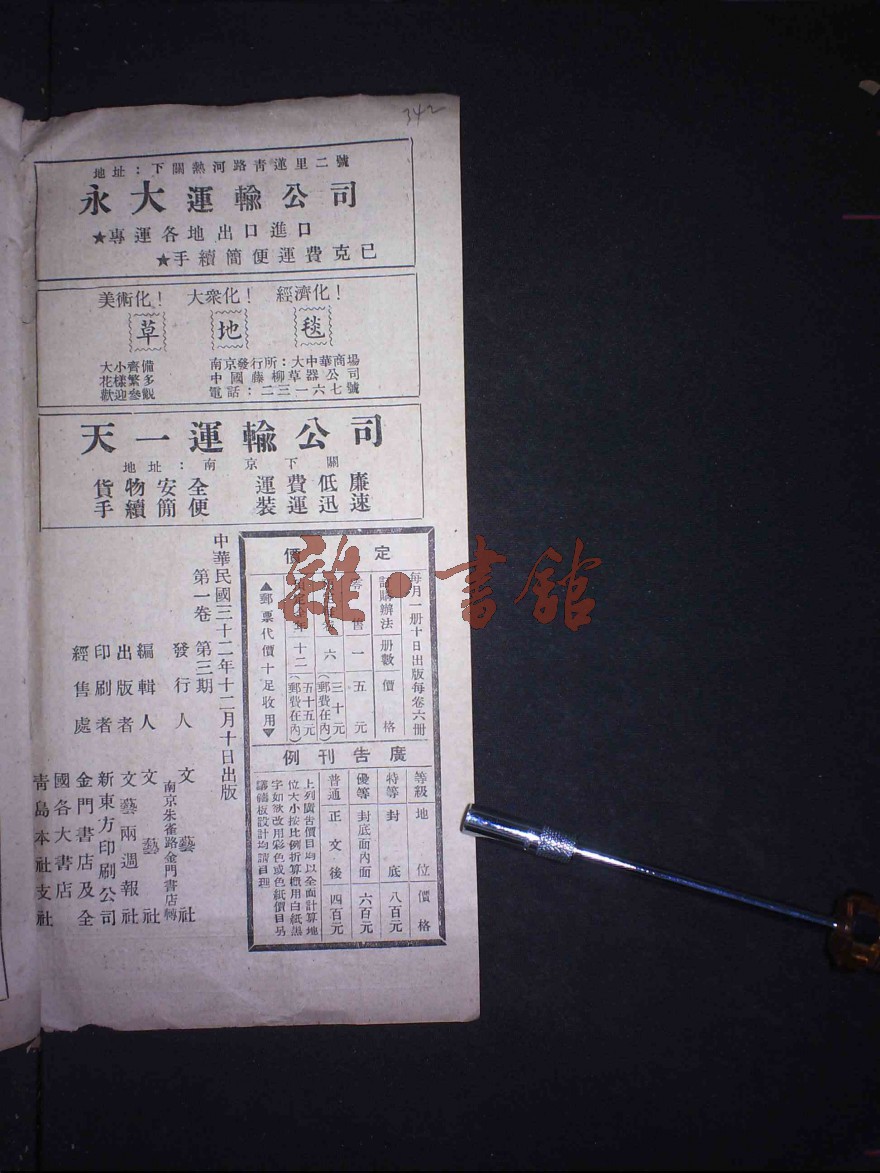 342
地址：下關熱河路青蓮里二號
永大運輸公司
★專運各地出口進口
★手續簡便運費克己
美術化！ 大衆化！ 經濟化！
草 地 毯
大小齊備
花樣繁多
歡迎參觀
南京發行所：大中華商場
中國藤柳草器公司
電話：二三一六七號
天一運輸公司
地址：南京下關
貨物安全 運費低廉
手續簡便 裝運迅速
定價
每月一册十日出版每卷六册
訂購辦法 册數 價格
零售 一 五元
六 三十元（郵費在內）
預定全年 十二 五十五元（郵費在內）
▲郵票代價十足收用▼
廣告刊例
等級 地位 價格
特等 封底 八百元
優等 封底面內面 六百元
普通 正文後 四百元
上列廣告價目均以全面計算地
位大小按比例折算概用白紙黑
字如欲改用彩色或色紙價目另
議鑄板設計均請自理
中華民國三十二年十二月十日出版
第一卷 第三期
發行人 文藝社
南京朱雀路金門書店轉
編輯人 文藝社
出版者 文藝兩週報社
印刷者 新東方印刷公司
經售處 金門書店及全
國各大書店
青島本社支社
雜·書館